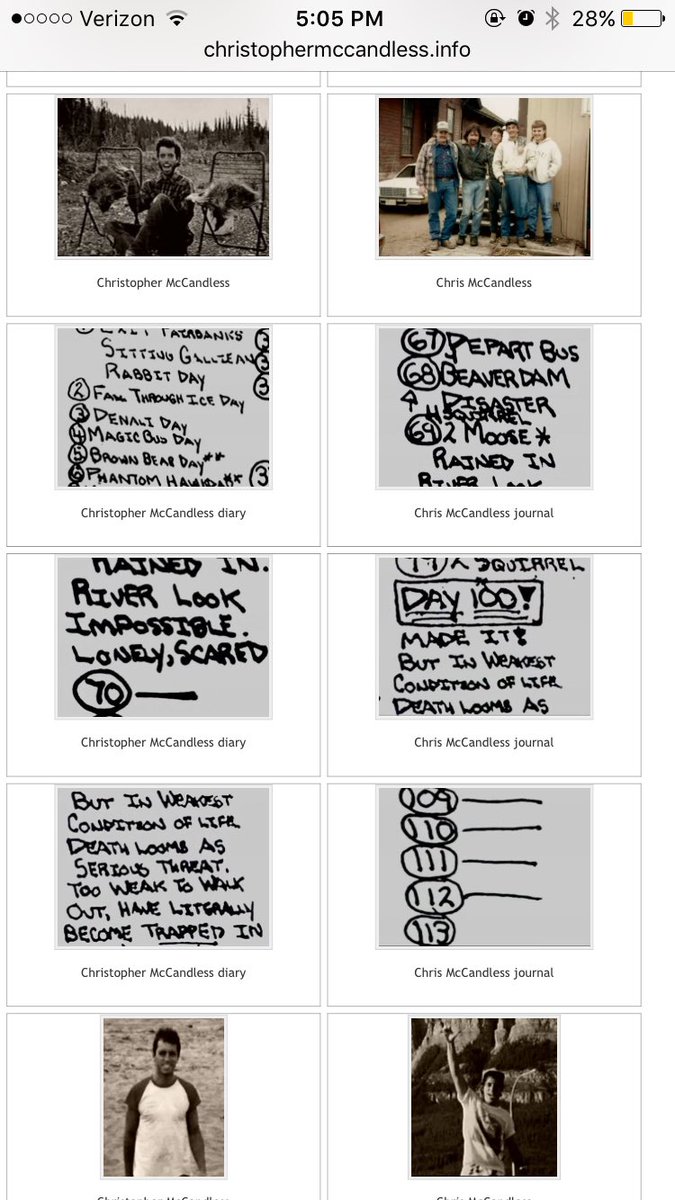 Verizon 5:05 PM 28%
christophermccandless.info
Christopher McCandless
Chris McCandless
EXIT FAIRBANKS
SITTING GALLIEAN
RABBIT DAY
② FALL THROUGH ICE DAY
③ DENALI DAY
④ MAGIC BUS DAY
⑤ BROWN BEAR DAY**
⑥ PHANTOM
Christopher McCandless diary
67 DEPART BUS
68 BEAVER DAM
DISASTER
SQUIRREL
69 2 MOOSE*
RAINED IN
RIVER LOOK
Chris McCandless journal
RAINED IN.
RIVER LOOK
IMPOSSIBLE.
LONELY, SCARED
70 —
Christopher McCandless diary
SQUIRREL
DAY 100!
MADE IT!
BUT IN WEAKEST
CONDITION OF LIFE
DEATH LOOMS AS
Chris McCandless journal
BUT IN WEAKEST
CONDITION OF LIFE
DEATH LOOMS AS
SERIOUS THREAT.
TOO WEAK TO WALK
OUT, HAVE LITERALLY
BECOME TRAPPED IN
Christopher McCandless diary
109 —
110 —
111 —
112 —
113
Chris McCandless journal
Christopher McCandless
Chris McCandless